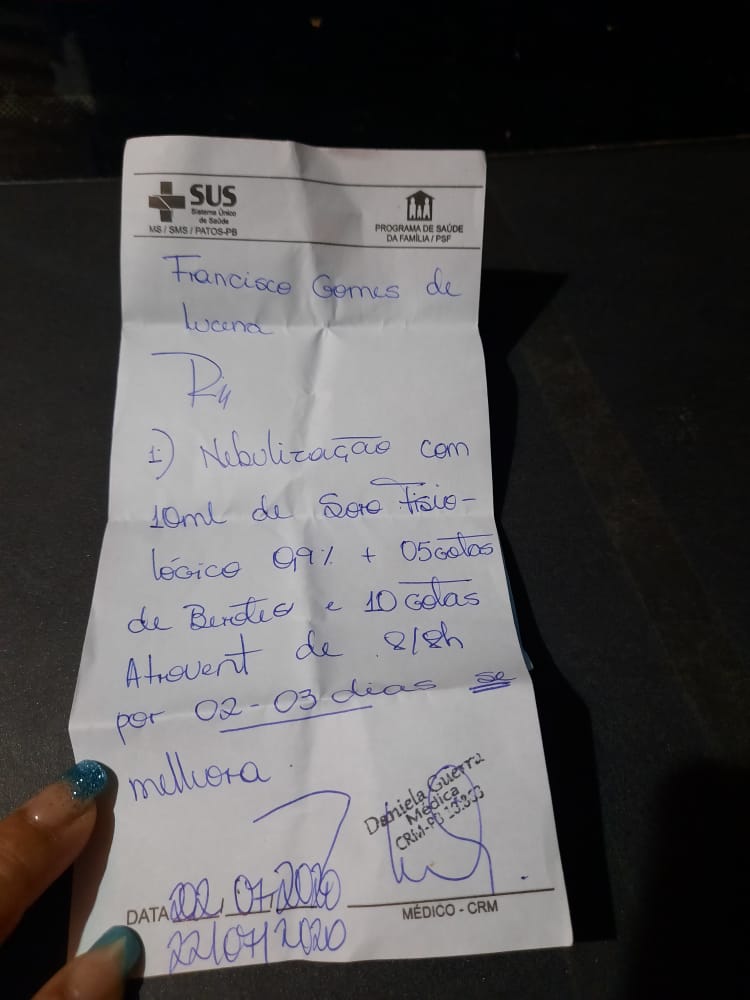 SUS
Sistema Único
de Saúde
MS / SMS / PATOS-PB
PROGRAMA DE SAÚDE
DA FAMÍLIA / PSF
Francisco Gomes de
Lucena
1.) Nebulização com
10ml de Soro Fisio-
lógico 0,9% + 05 Gotas
de Berotec e 10 Gotas
Atrovent de 8/8h
por 02-03 dias se
melhora.
Daniela Guerra
Médica
CRM-PB
DATA 07, 2020
22/07/2020
MÉDICO - CRM